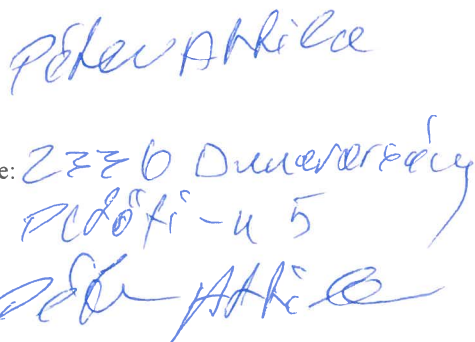 Péter Attila
e: 2336 Dunavarsány
Petőfi - u 5
Péter Attila